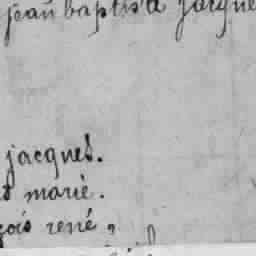 jean baptiste jacques
jacques.
marie.
rené,